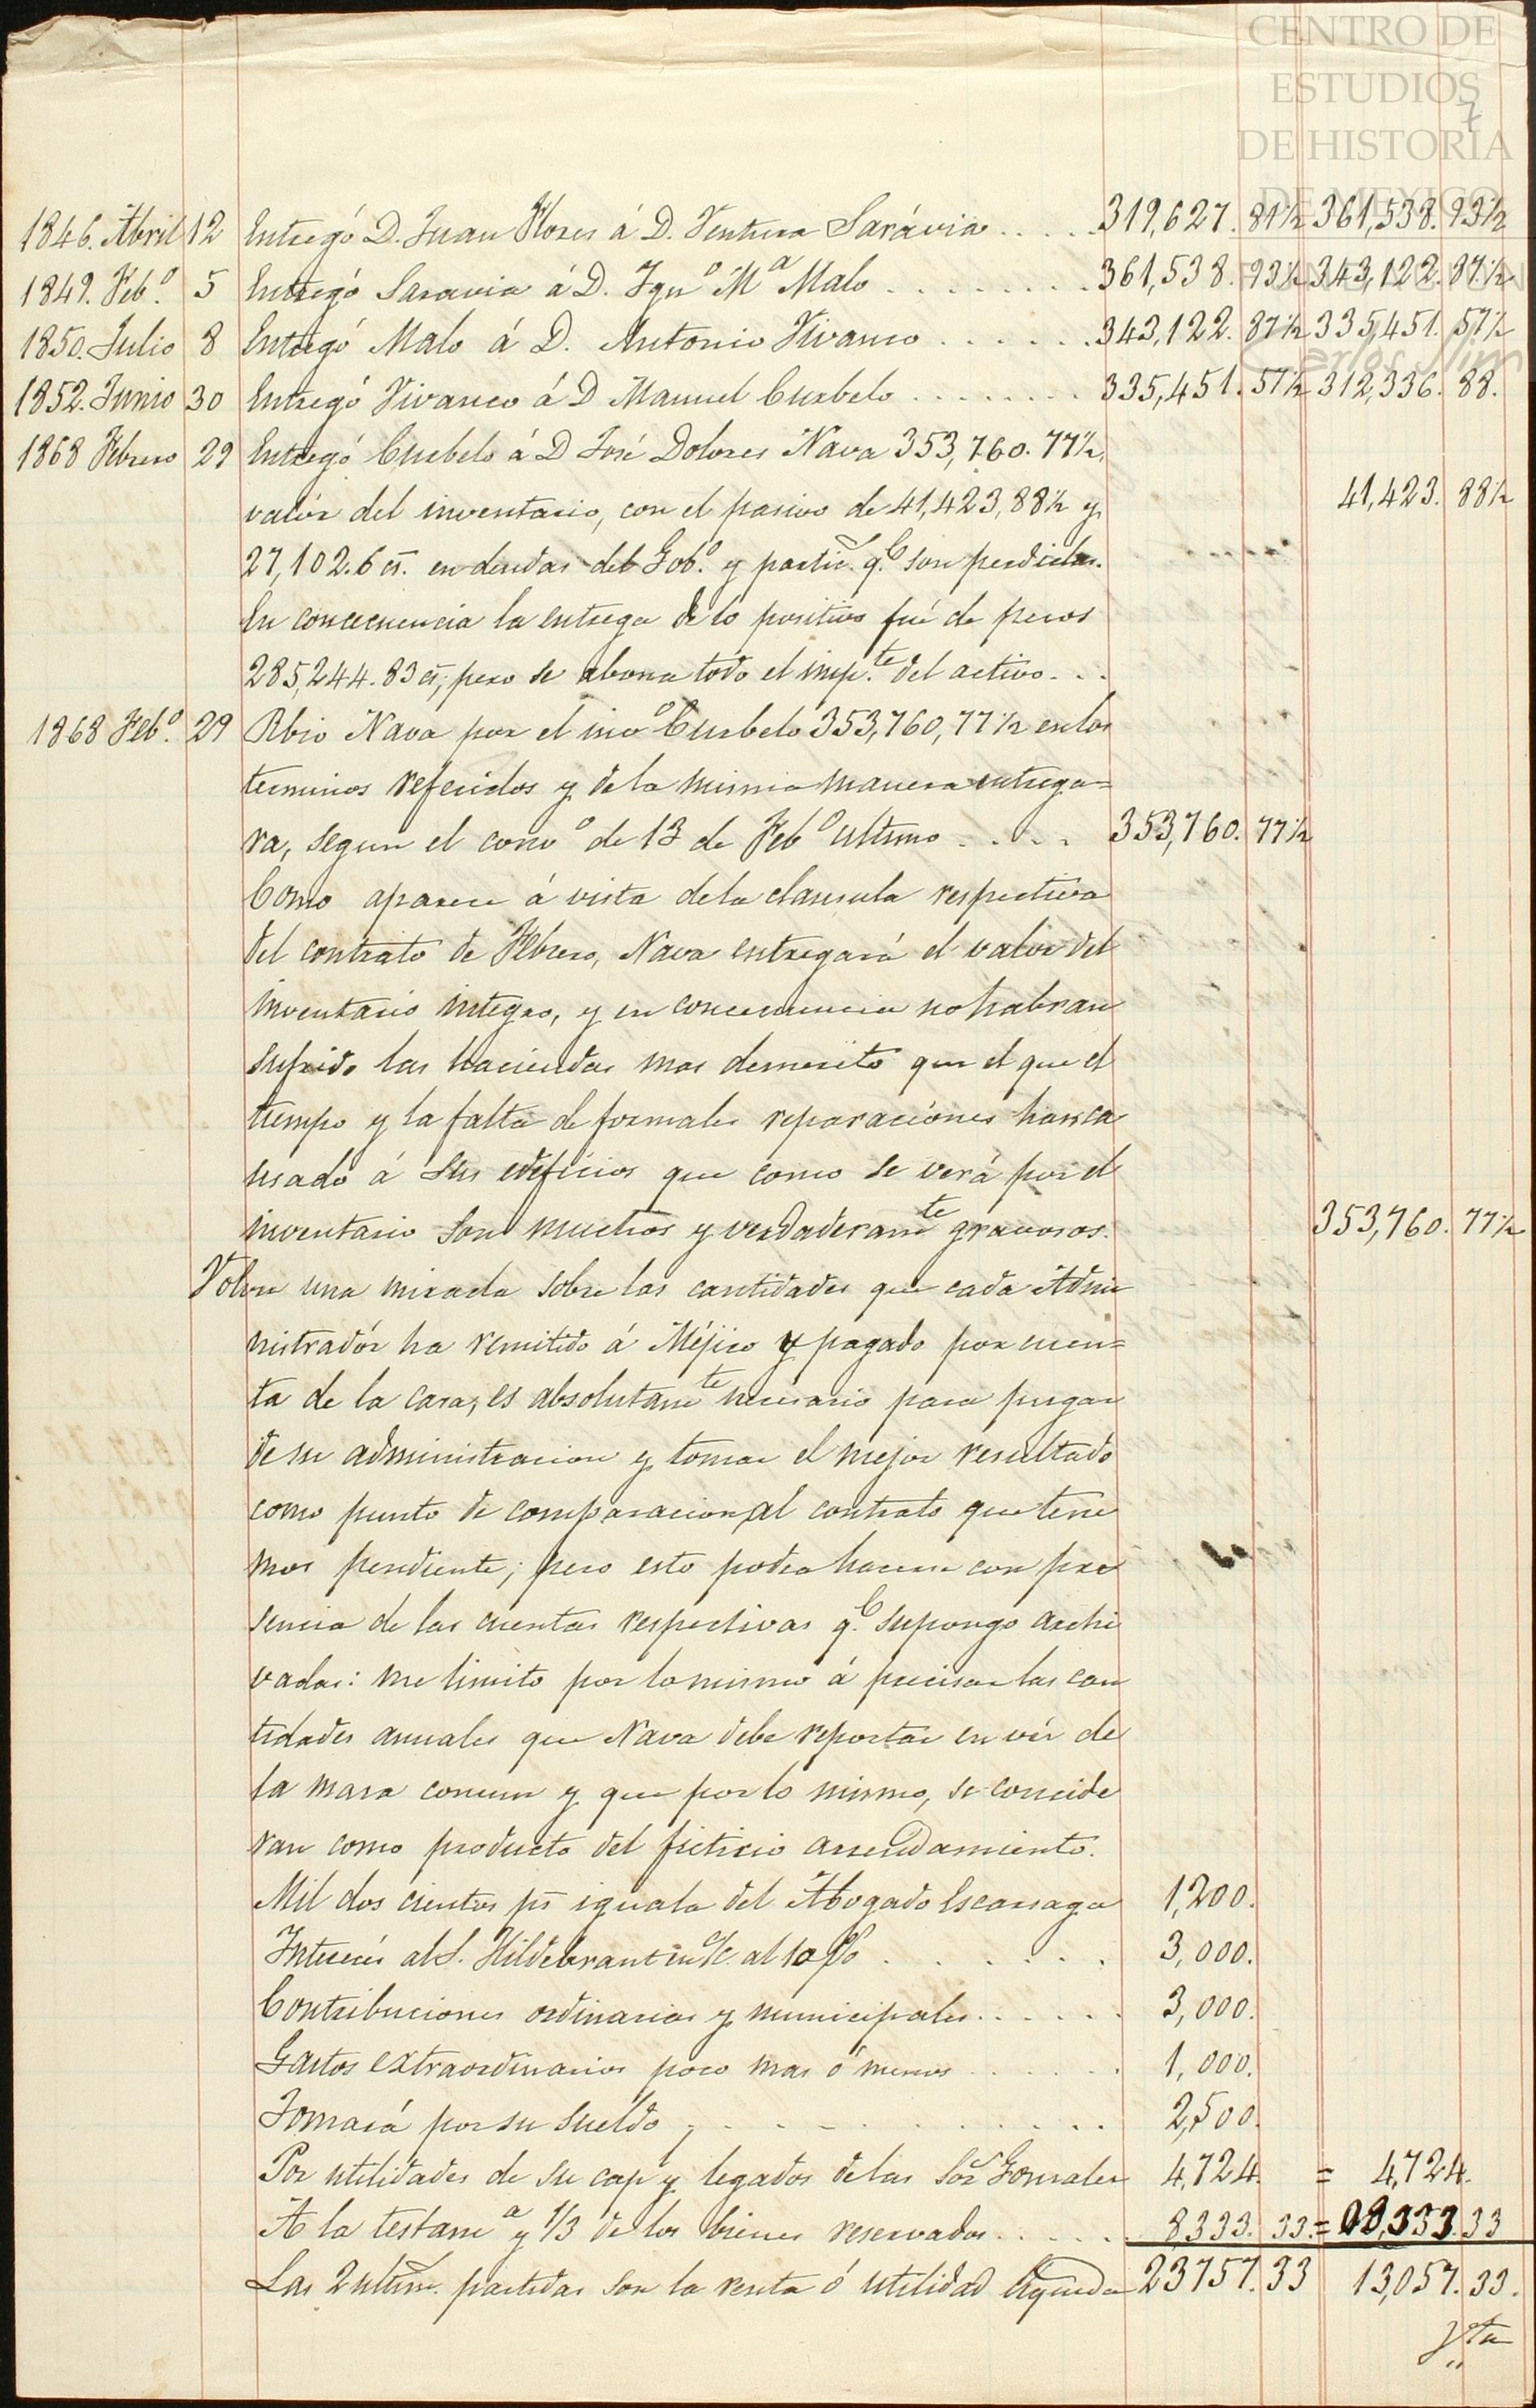 CENTRO DE
ESTUDIOS
DE HISTORIA
DE MEXICO
7
1846. Abril 12 Entregó D. Juan Flores á D. Ventura Sarávia .... 319,627. 81½ 361,538. 93½
1849. Febº. 5 Entregó Saravia á D. Ignº Mª Malo ........ 361,538. 93½ 343,122. 87½
1850. Julio 8 Entregó Malo á D. Antonio Vivanco ...... 343,122. 87½ 335,451. 57½
Carlos Slim
1852. Junio 30 Entregó Vivanco á D Manuel Curbelo ........ 335,451. 57½ 312,336. 88.
1868 Febrero 29 Entregó Curbelo á D José Dolores Nava 353,760. 77½,
valór del inventario, con el pasivo de 41,423,88½ y 41,423. 88½
27,102.6 cs. en deudas del Gobº. y partic. q.e son perdidas.
En concecuencia la entrega de lo positivo fué de pesos
285,244. 83 cs, pero se abona todo el imp.te del activo...
1868 Febº. 29 Rbió Nava por el invº Curbelo 353,760,77½ en los
terminos referidos y de la misma manera entrega=
ra, segun el convº de 13 de Febº ultimo .... 353,760. 77½
Como aparece á vista de la clausula respectiva
del contrato de Febrero, Nava entregará el valor del
inventario integro, y en concecuencia no habran
sufrido las haciendas mas demerito que el que el
tiempo y la falta de formales reparaciónes han ca
usado á sus edeficios que como se verá por el
inventario son muchos y verdaderamte gravosos. 353,760. 77½
Volver una mirada sobre las cantidades que cada Admi
nistradór ha remitido á Méjico y pagado por cuen=
ta de la casa, es absolutamte necesario para juzgar
de su administracion y tomar el mejor resultado
como punto de comparacion al contrato que tene
mos pendiente; pero esto podra hacerse con pre
sencia de las cuentas respectivas q.e supongo archi
vadas: me limito por lo mismo á precisar las can
tidades anuales que Nava debe reportar en vés de
la masa comun y que por lo mismo, se concide
ran como producto del ficticio arrendamiento.
Mil dos cientos ps iguala del Abogado Escarzaga 1,200.
Interés al S. Hildebrant en c/c. al 10 p% ...... 3,000.
Contribuciones ordinarias y municipales ...... 3,000.
Gastos extraordinarios poco mas ó menos ...... 1,000.
Tomará por su sueldo, ........ 2,500.
Por utilidades de su cap y legados de las Sras Gonzales 4,724. = 4,724.
A la testamª y 1/3 de los bienes reservados ..... 8,333. 33. = 08,333. 33
Las 2 ultims. partidas son la renta ó utilidad liquida 23757. 33 13,057. 33.
Vta